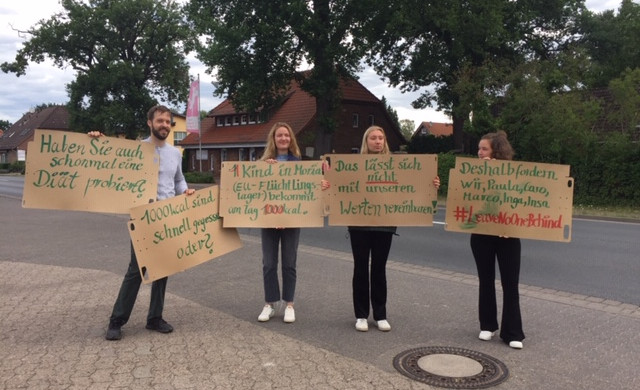 Haben Sie auch
schonmal eine
Diät probiert?
1000kcal sind
schnell gegessen
oder?
1 Kind in Moria
(EU-Flüchtlings-
lager) bekommt
am Tag 1000kcal.
Das lässt sich
nicht
mit unseren
Werten vereinbaren
Deshalb fordern
wir,
Marco, Inga, Insa
#LeaveNoOneBehind